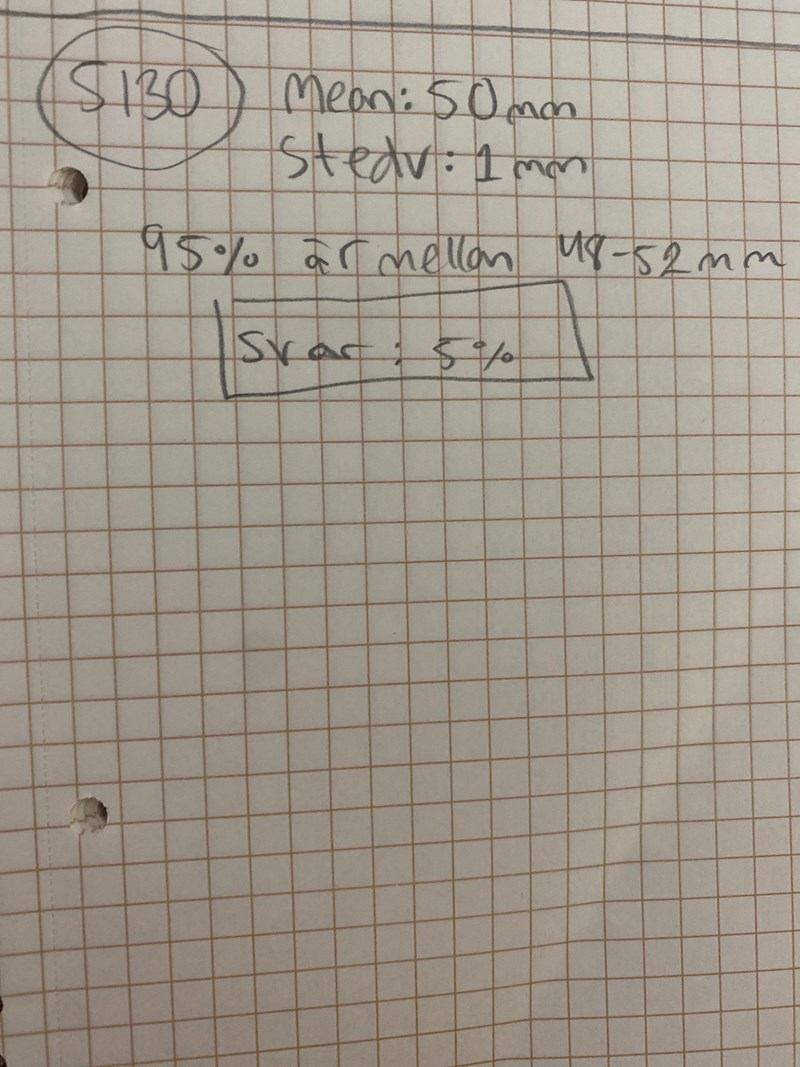 5130 Mean: 50mm
Stedv: 1mm
95% är mellan 48-52mm
Svar: 5%